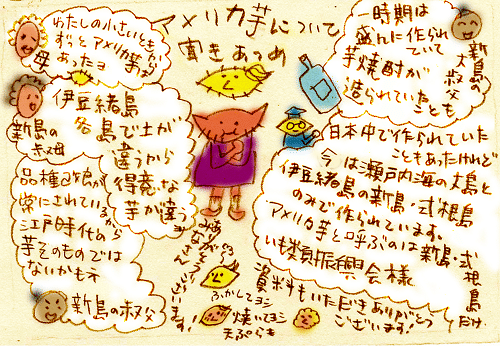 アメリカ芋について
聞きあつめ
わたしの小さいときも
ずっとアメリカ芋が
あったヨ
母
一時期は
盛んに作られ
ていて
芋焼酎が
造られていたことも
新島の
大叔父
伊豆緒島
各島で土が
違うから
得意な
芋が違う
新島の
叔母
日本中で作られていた
こともあったけれど
今は瀬戸内海の大島と
伊豆緒島の新島・式根島
のみで作られています。
アメリカ芋と呼ぶのは新島・式
根島
だけ。
いも類振興会様
品種改良が
常にされているから
江戸時代の
芋そのものでは
ないかもネ
新島の叔父
みなさん
ありがとう
ございます!
ふかしてヨシ
焼いてヨシ
天ぷらも
資料もいただきありがとう
ございます!